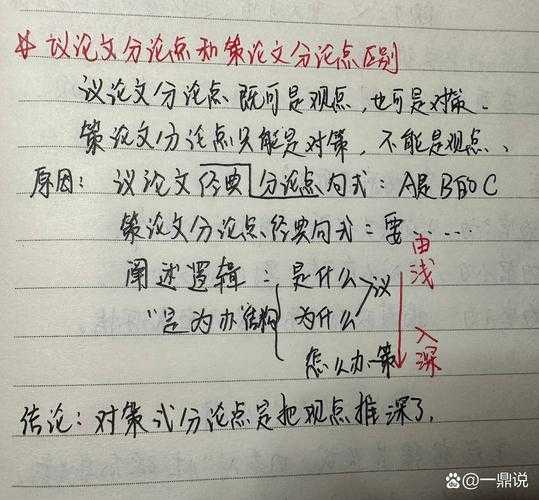 议论文分论点和策论文分论点区别
议论文分论点既可是观点，也可是对策。
策论文分论点只能是对策，不能是观点、
原因：议论文经典分论点句式：A是B的C
策论文分论点经典句式：要……
阐述逻辑：是什么 议 由浅
"是为办"结构 为什么
怎么办 策 入深
结论：对策式分论点是把观点推深了.
@一鼎说